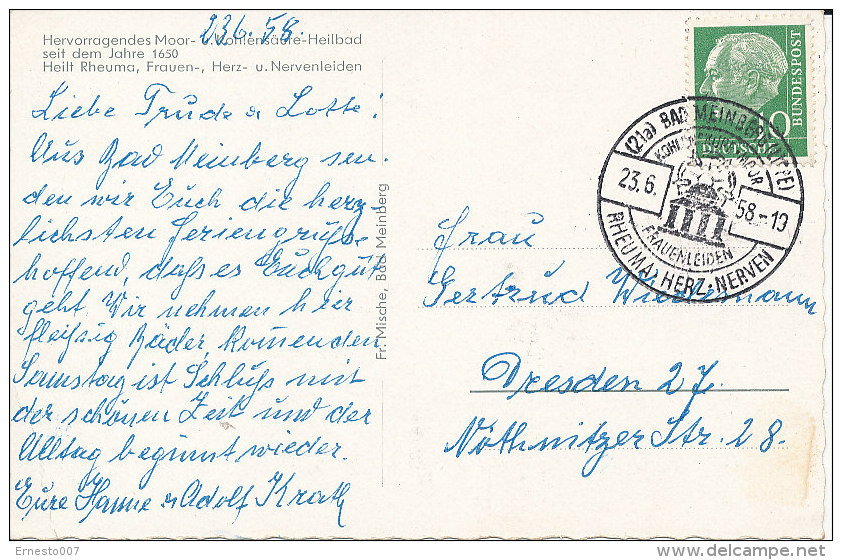 23.6.58.
Hervorragendes Moor- u. Kohlensäure-Heilbad
seit dem Jahre 1650
Heilt Rheuma, Frauen-, Herz- u. Nervenleiden
Liebe Trude u Lotte!
Aus Bad Meinberg sen-
den wir Euch die herz-
lichsten Feriengrüße
hoffend, daß es Euch gut
geht. Wir nehmen hier
fleißig Bäder, kommenden
Samstag ist Schluß mit
der schönen Zeit und der
Alltag beginnt wieder.
Eure Hanne u Adolf Krath
Fr. Mische, Bad Meinberg
DEUTSCHE
BUNDESPOST
10
(21a) BAD MEINBERG (LIPPE)
KOHLENSÄURE MOOR
23.6.
58-19
FRAUENLEIDEN
RHEUMA, HERZ, NERVEN
Frau
Gertrud Wiedemann
Dresden 27.
Nöthnitzer Str. 28.
Ernesto007
delcampe.net